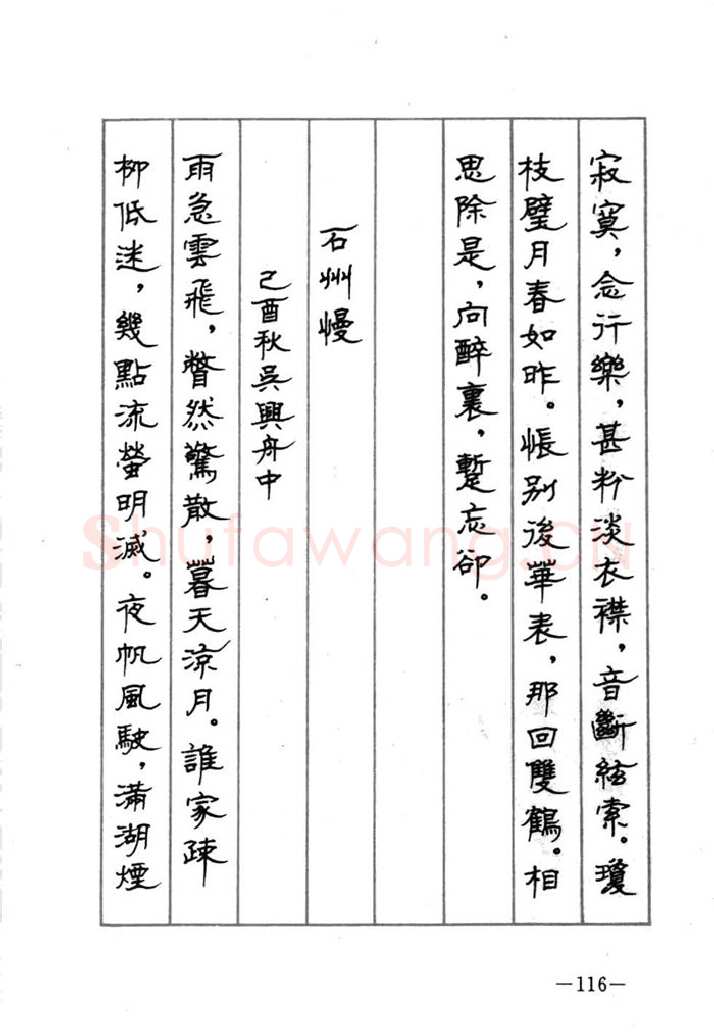 寂寞，念行樂，甚粉淡衣襟，音斷絃索。瓊
枝璧月春如昨。悵别後華表，那回雙鶴。相
思除是，向醉裏，暫忘卻。
石州慢
己酉秋吳興舟中
雨急雲飛，瞥然驚散，暮天涼月。誰家疎
柳低迷，幾點流螢明滅。夜帆風駛，滿湖煙
—116—
Shufawang.cn